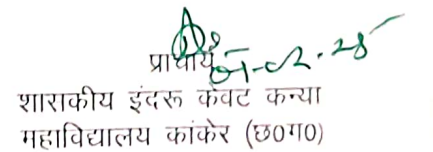 प्राचार्य
शासकीय इंदरू केंवट कन्या
महाविद्यालय कांकेर (छ०ग०)